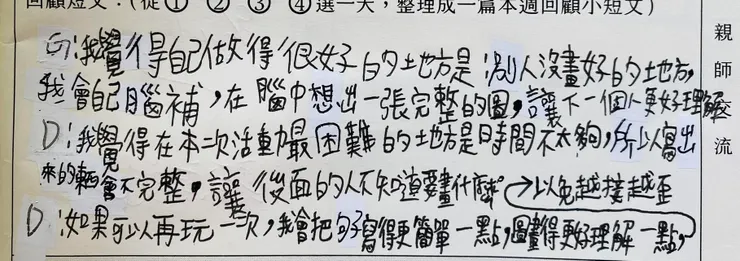 回顧短文:(從① ② ③ ④選一天,整理成一篇本週回顧小短文)
親師交流
G:我覺得自己做得很好的地方是:別人沒畫好的地方,
我會自己腦補,在腦中想出一張完整的圖,讓下一個人更好理解
D:我覺得在本次活動最困難的地方是時間不太夠,所以寫出
來的東西會不完整,讓後面的人不知道要畫什麼
D:如果可以再玩一次,我會把句子寫得更簡單一點,圖畫得更好理解一點,
以免越接越歪